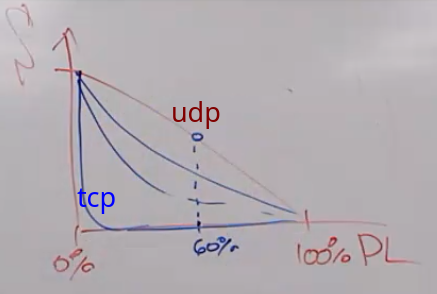 udp
tcp
0%
60%
100% PL